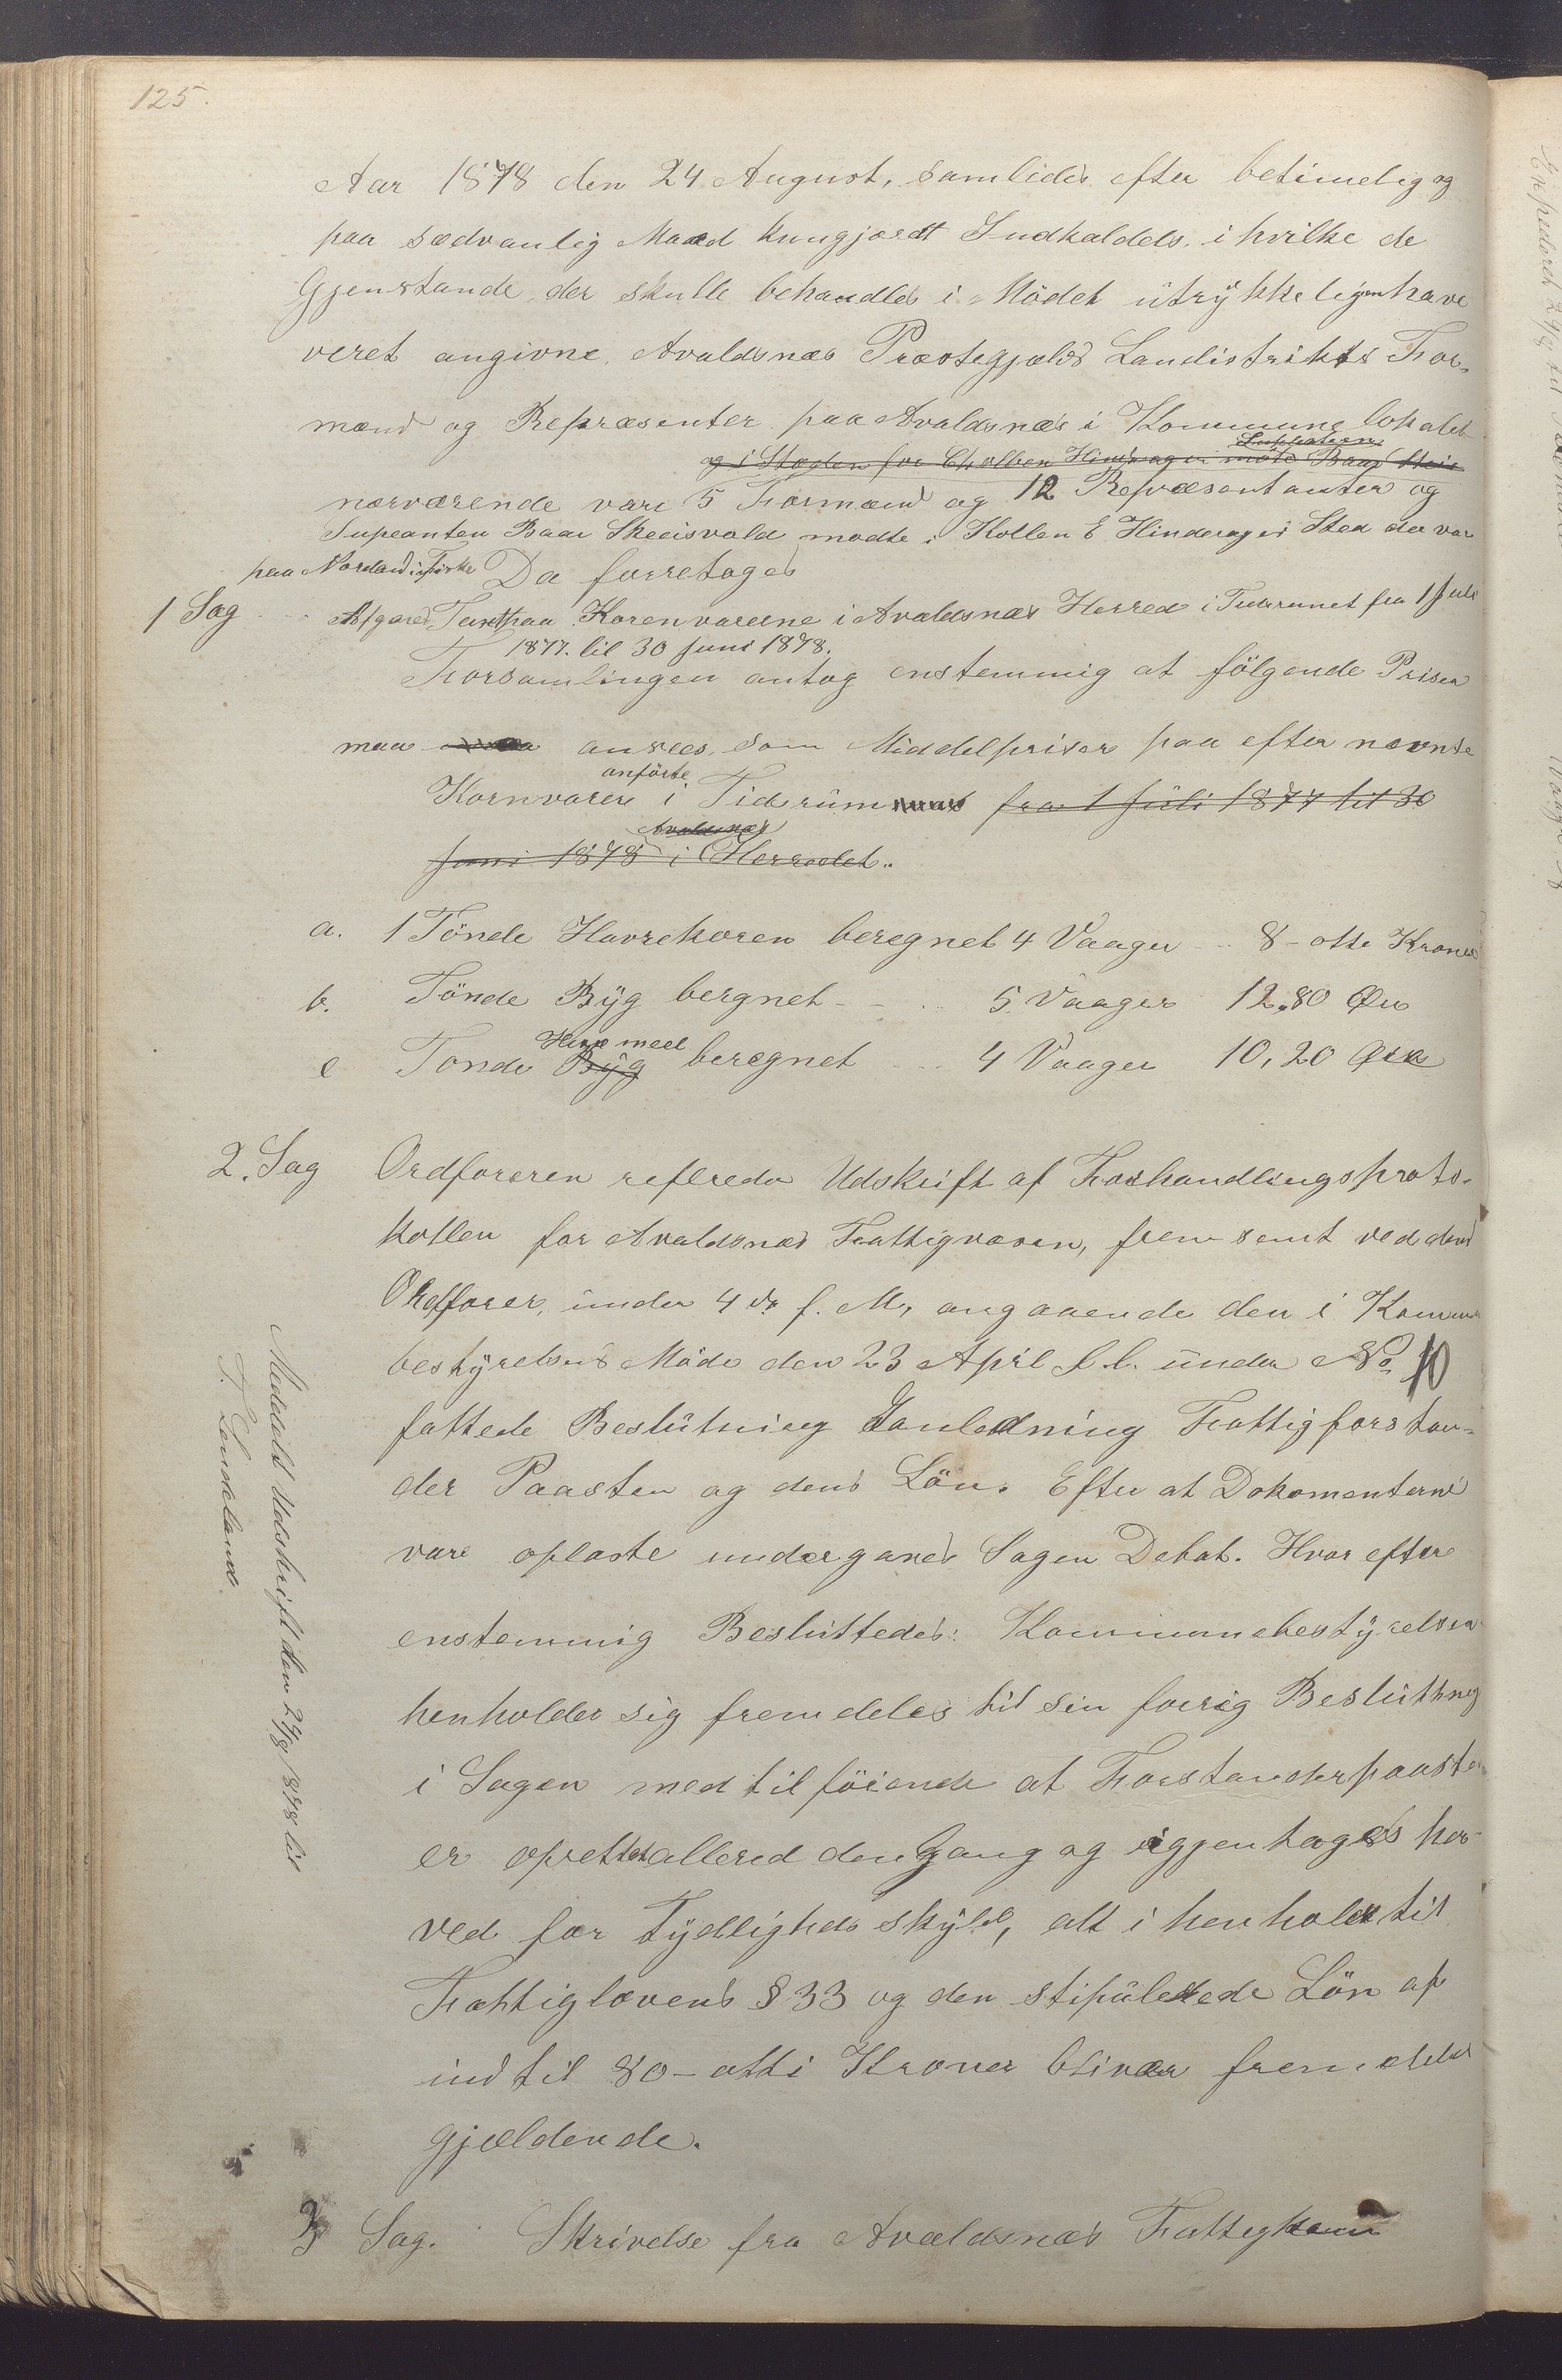 125.
Aar 1878 den 24 August, samlides efter betimelig og
paa sædvanlig Maad kungjordt Indkaldels. i hvilke de
Gjenstande, der skulle behandles i Mödet ütrÿkkeligen have
veret angivne, Avaldsnæs Præstegjælds Landistrikts For-
mænd og Repræsenter paa Avaldsnæs i Kommune lokalet
og i Steden for Cholben Hinderager möte Baar Skeis
Supleaten
nærværende vare 5 Formænd og 12 Repræsentanter og
Supeanten Baar Skeisvold modte i Kollen E Hinderager Sted der var
paa Nordlandsfiske Da forretoges
1 Sag Afgaves Taxt paa Korenvarerne i Avaldsnæs Herred i Tidsrumet fra 1 Juli
1877. til 30 Juni 1878.
Forsamlingen antog enstemmig at fölgende Priser
maa ansees som Middelpriser paa efter nævnte
anförte
Kornvarer i Tidsrüm fra 1 Jüli 1877 til 30
Avaldsnæs
Juni 1878 i Herredet.
a. 1 Tönde Havrekoren beregnet 4 Vaager 8 - otte Kroner
b. Tönde Bÿg bergnet - - 5 Vaager 12.80 Øre
Havremeel
c Tonde Bÿg beregnet 4 Vaager 10,20 Øre
2. Sag Ordforeren refereda Udskrift af Forhandlingsproto-
kollen for Avaldsnæs Fattigvæsen, frem sent ved dens
Ordforer, ünder 4de f. M, angaaende den i Kommune
bestÿrelsens Möde den 23 April d. l. ünder No 10
fattede Beslütning I anledning Fattigforstan-
der Paasten og dens Lön. Efter at Dokomenterne
vare oplæste undergaves Sagen Debat. Hvor efter
enstemmig Besluttedes: Kommunebestÿrelsen
henholder sig fremdeles til sin forrig Beslütning
i Sagen med til föiende at Forstanderpaasten
er oprettet allered den Gang og iggjentages her
ved for Tÿdligheds skÿld, alt i henhold til
Fattiglovens § 33 og den stipülerede Lön af
ind til 80 - otti Kroner bliver fremdeles
gjældende.
3 Sag. Skrivelse fra Avaldsnæs Fattigkom
Meddelt Udskrift den 29/8 1878 til
T. Lindeland.